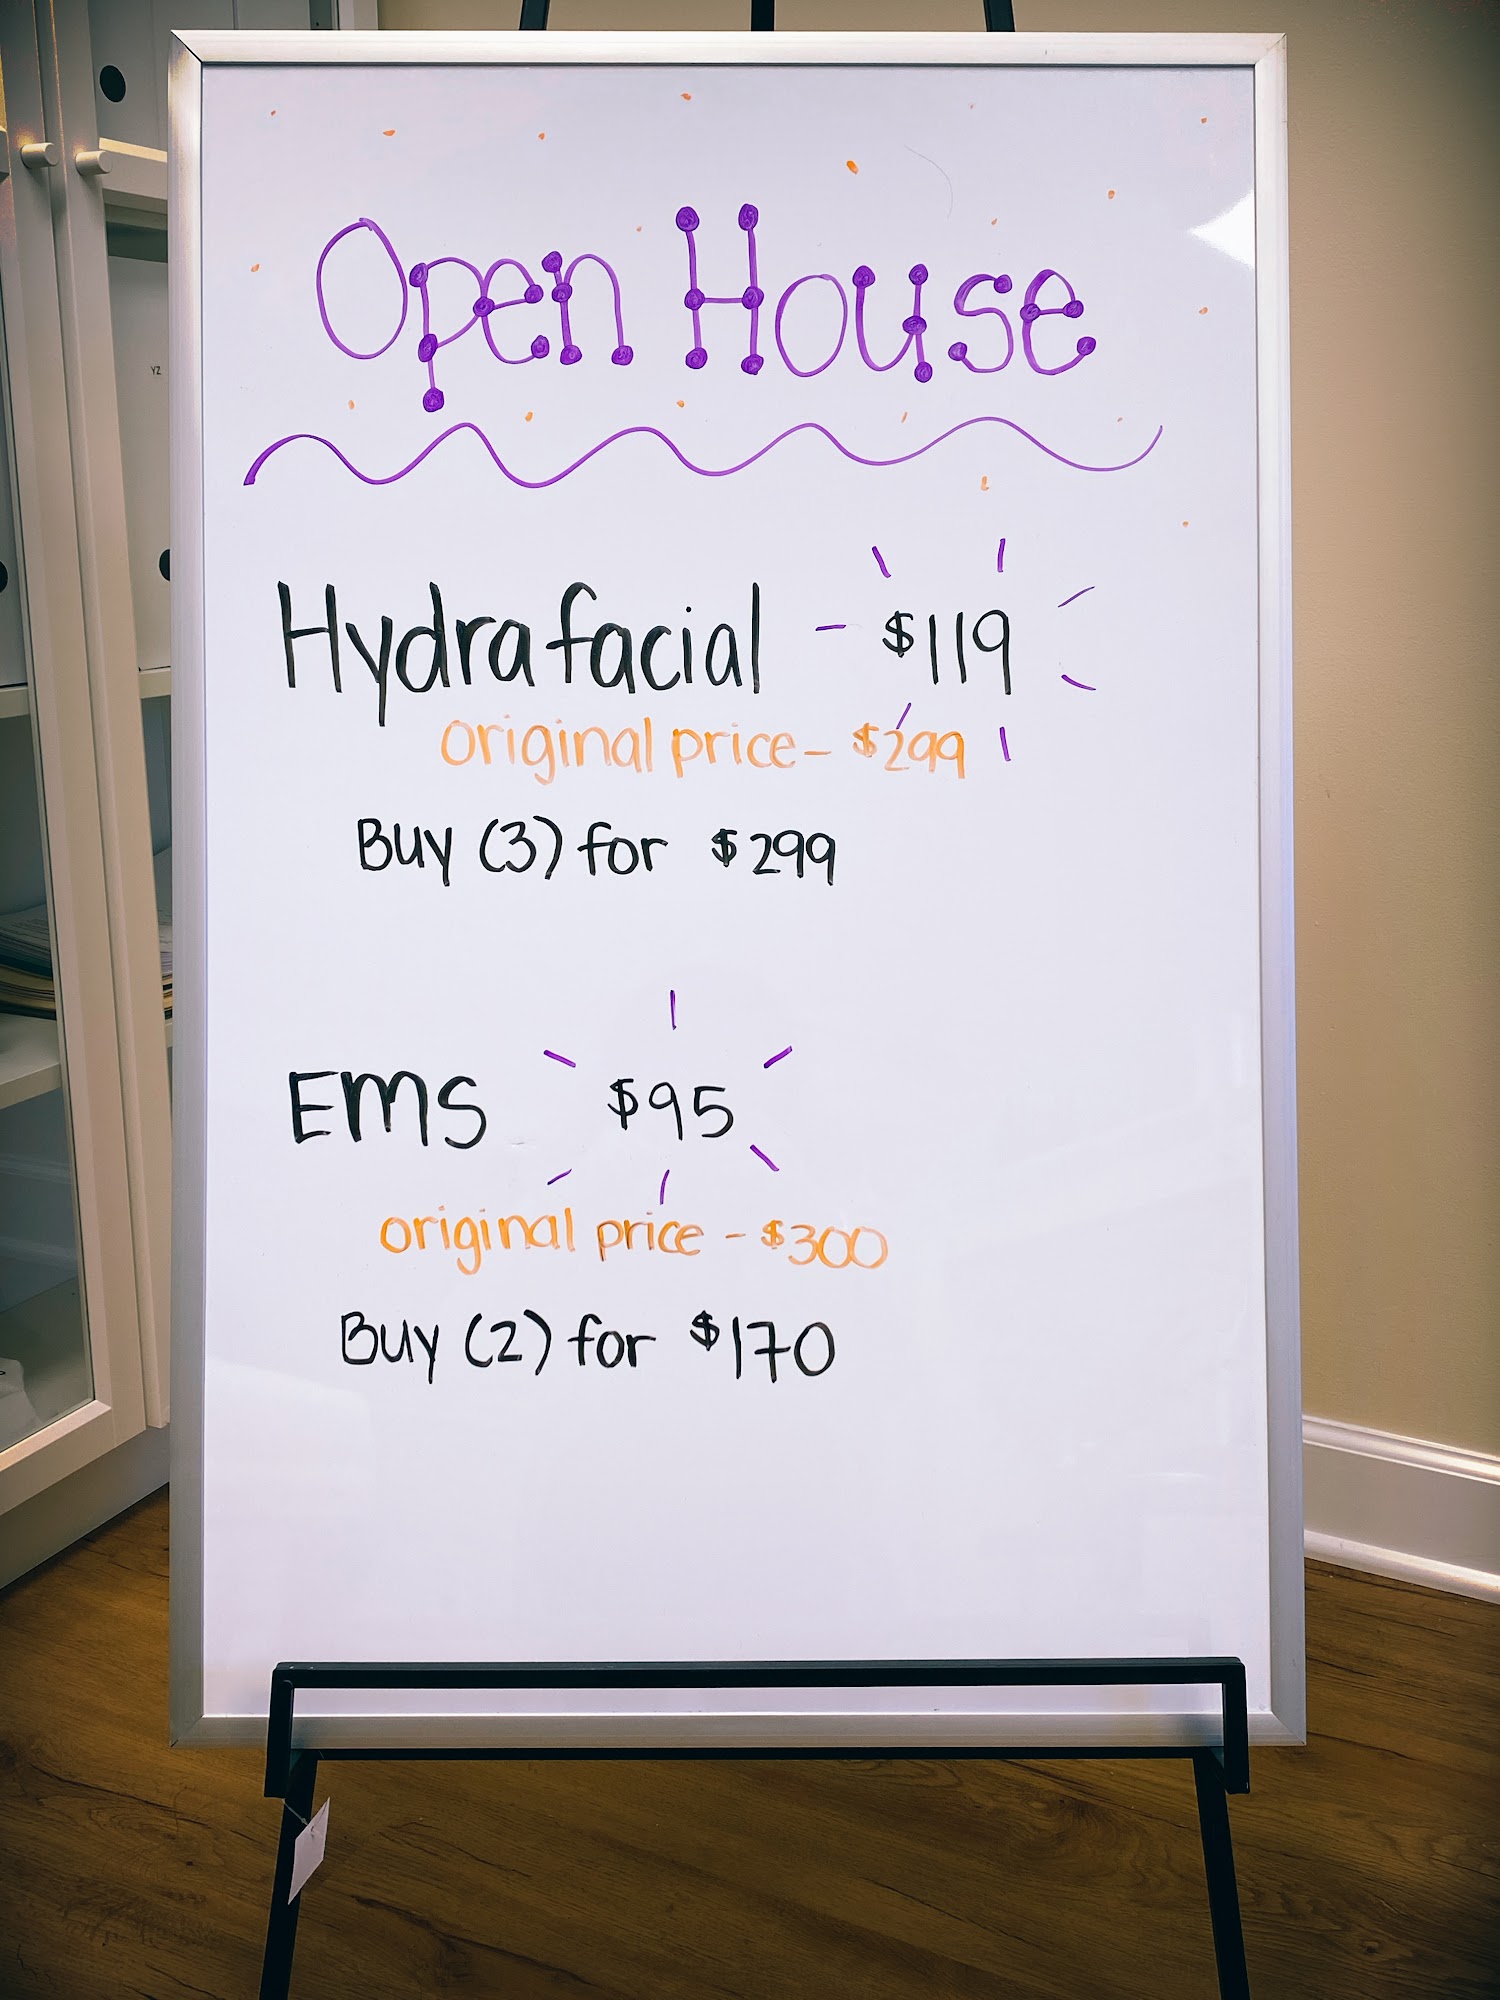 Open House
Hydrafacial - $119
original price - $299
Buy (3) for $299
EMS $95
original price - $300
Buy (2) for $170
YZ